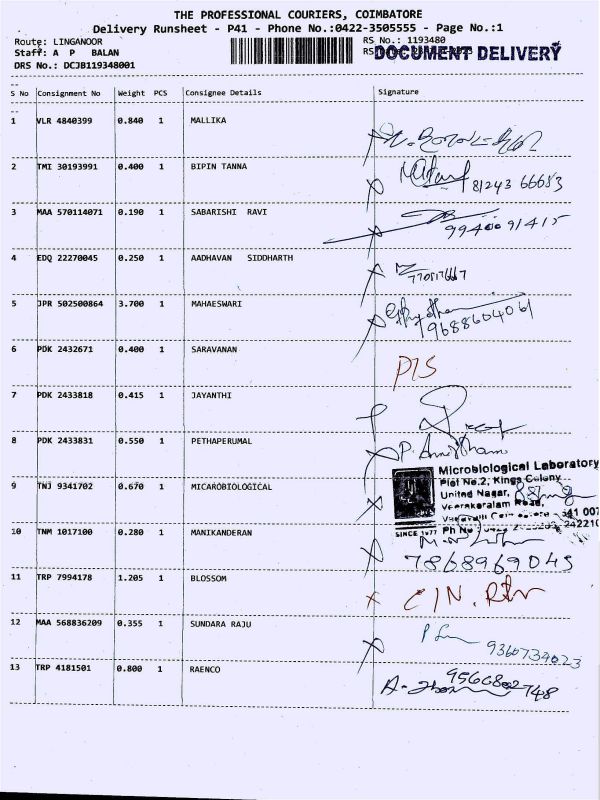 THE PROFESSIONAL COURIERS, COIMBATORE
Delivery Runsheet - P41 - Phone No.:0422-3505555 - Page No.:1
Route: LINGANOOR RS No.: 1193480
Staff: A P BALAN DOCUMENT DELIVERY
DRS No.: DCJB119348001
S No Consignment No Weight PCS Consignee Details Signature
1 VLR 4840399 0.840 1 MALLIKA
2 TMI 30193991 0.400 1 BIPIN TANNA
81243 66683
3 MAA 570114071 0.190 1 SABARISHI RAVI
99400 91415
4 EDQ 22270045 0.250 1 AADHAVAN SIDDHARTH
5 JPR 502500864 3.700 1 MAHAESWARI
9688604061
6 PDK 2432671 0.400 1 SARAVANAN
7 PDK 2433818 0.415 1 JAYANTHI
8 PDK 2433831 0.550 1 PETHAPERUMAL
Microbiological Laboratory
Plot No.2, Kings Colony
9 TNJ 9341702 0.670 1 MICAROBIOLOGICAL
United Nagar,
Veerakeralam Road,
641 007
SINCE 1977 Ph No
10 TNM 1017100 0.280 1 MANIKANDERAN
7868969045
11 TRP 7994178 1.205 1 BLOSSOM
12 MAA 568836209 0.355 1 SUNDARA RAJU
9360734023
13 TRP 4181501 0.800 1 RAENCO